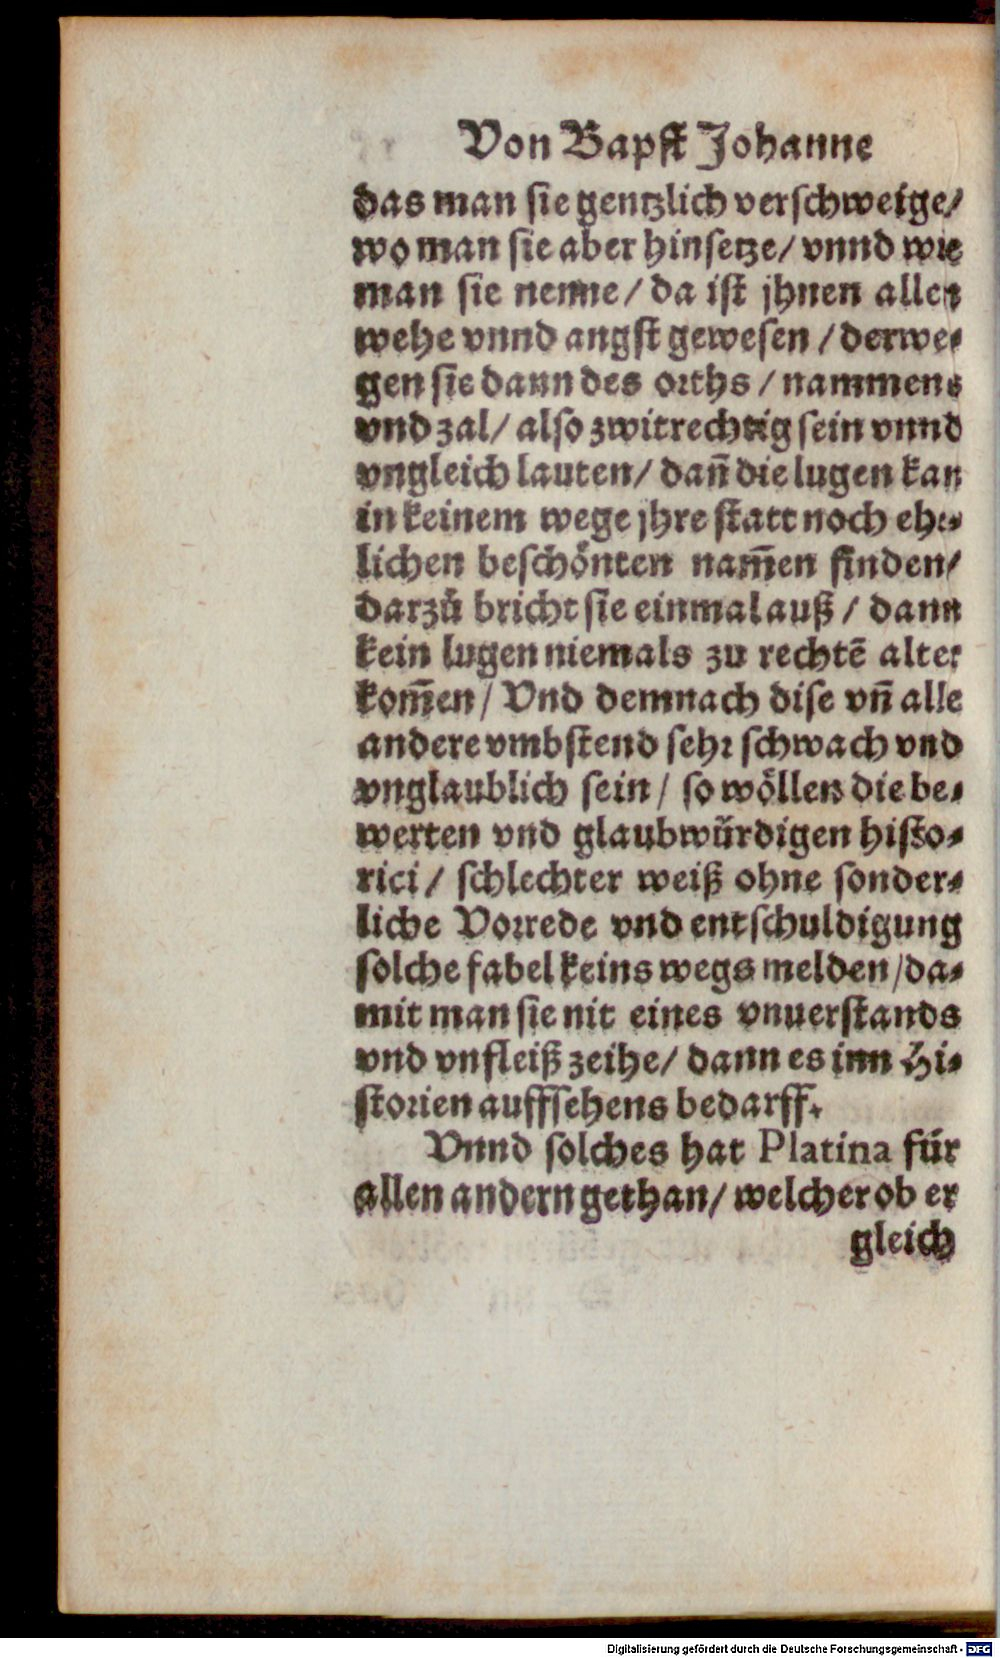 Von Bapst Johanne
das man sie gentzlich verschweige/
wo man sie aber hinsetze/ vnnd wie
man sie nenne/ da ist jhnen allen
wehe vnnd angst gewesen / derwe-
gen sie dann des orths / nammens
vnd zal/ also zwitrechtig sein vnnd
vngleich lauten/ dañ die lugen kan
in keinem wege jhre statt noch ehr-
lichen beschönten nam̃en finden/
darzů bricht sie einmal auß / dann
kein lugen niemals zu rechtẽ alter
kom̃en/ Vnd demnach dise vñ alle
andere vmbstend sehr schwach vnd
vnglaublich sein/ so wöllen die be-
werten vnd glaubwürdigen histo-
rici/ schlechter weiß ohne sonder-
liche Vorrede vnd entschuldigung
solche fabel keins wegs melden/da-
mit man sie nit eines vnuerstands
vnd vnfleiß zeihe/ dann es inn Hi-
storien auffsehens bedarff.
Vnnd solches hat Platina für
allen andern gethan/ welcher ob er
gleich
Digitalisierung gefördert durch die Deutsche Forschungsgemeinschaft - DFG